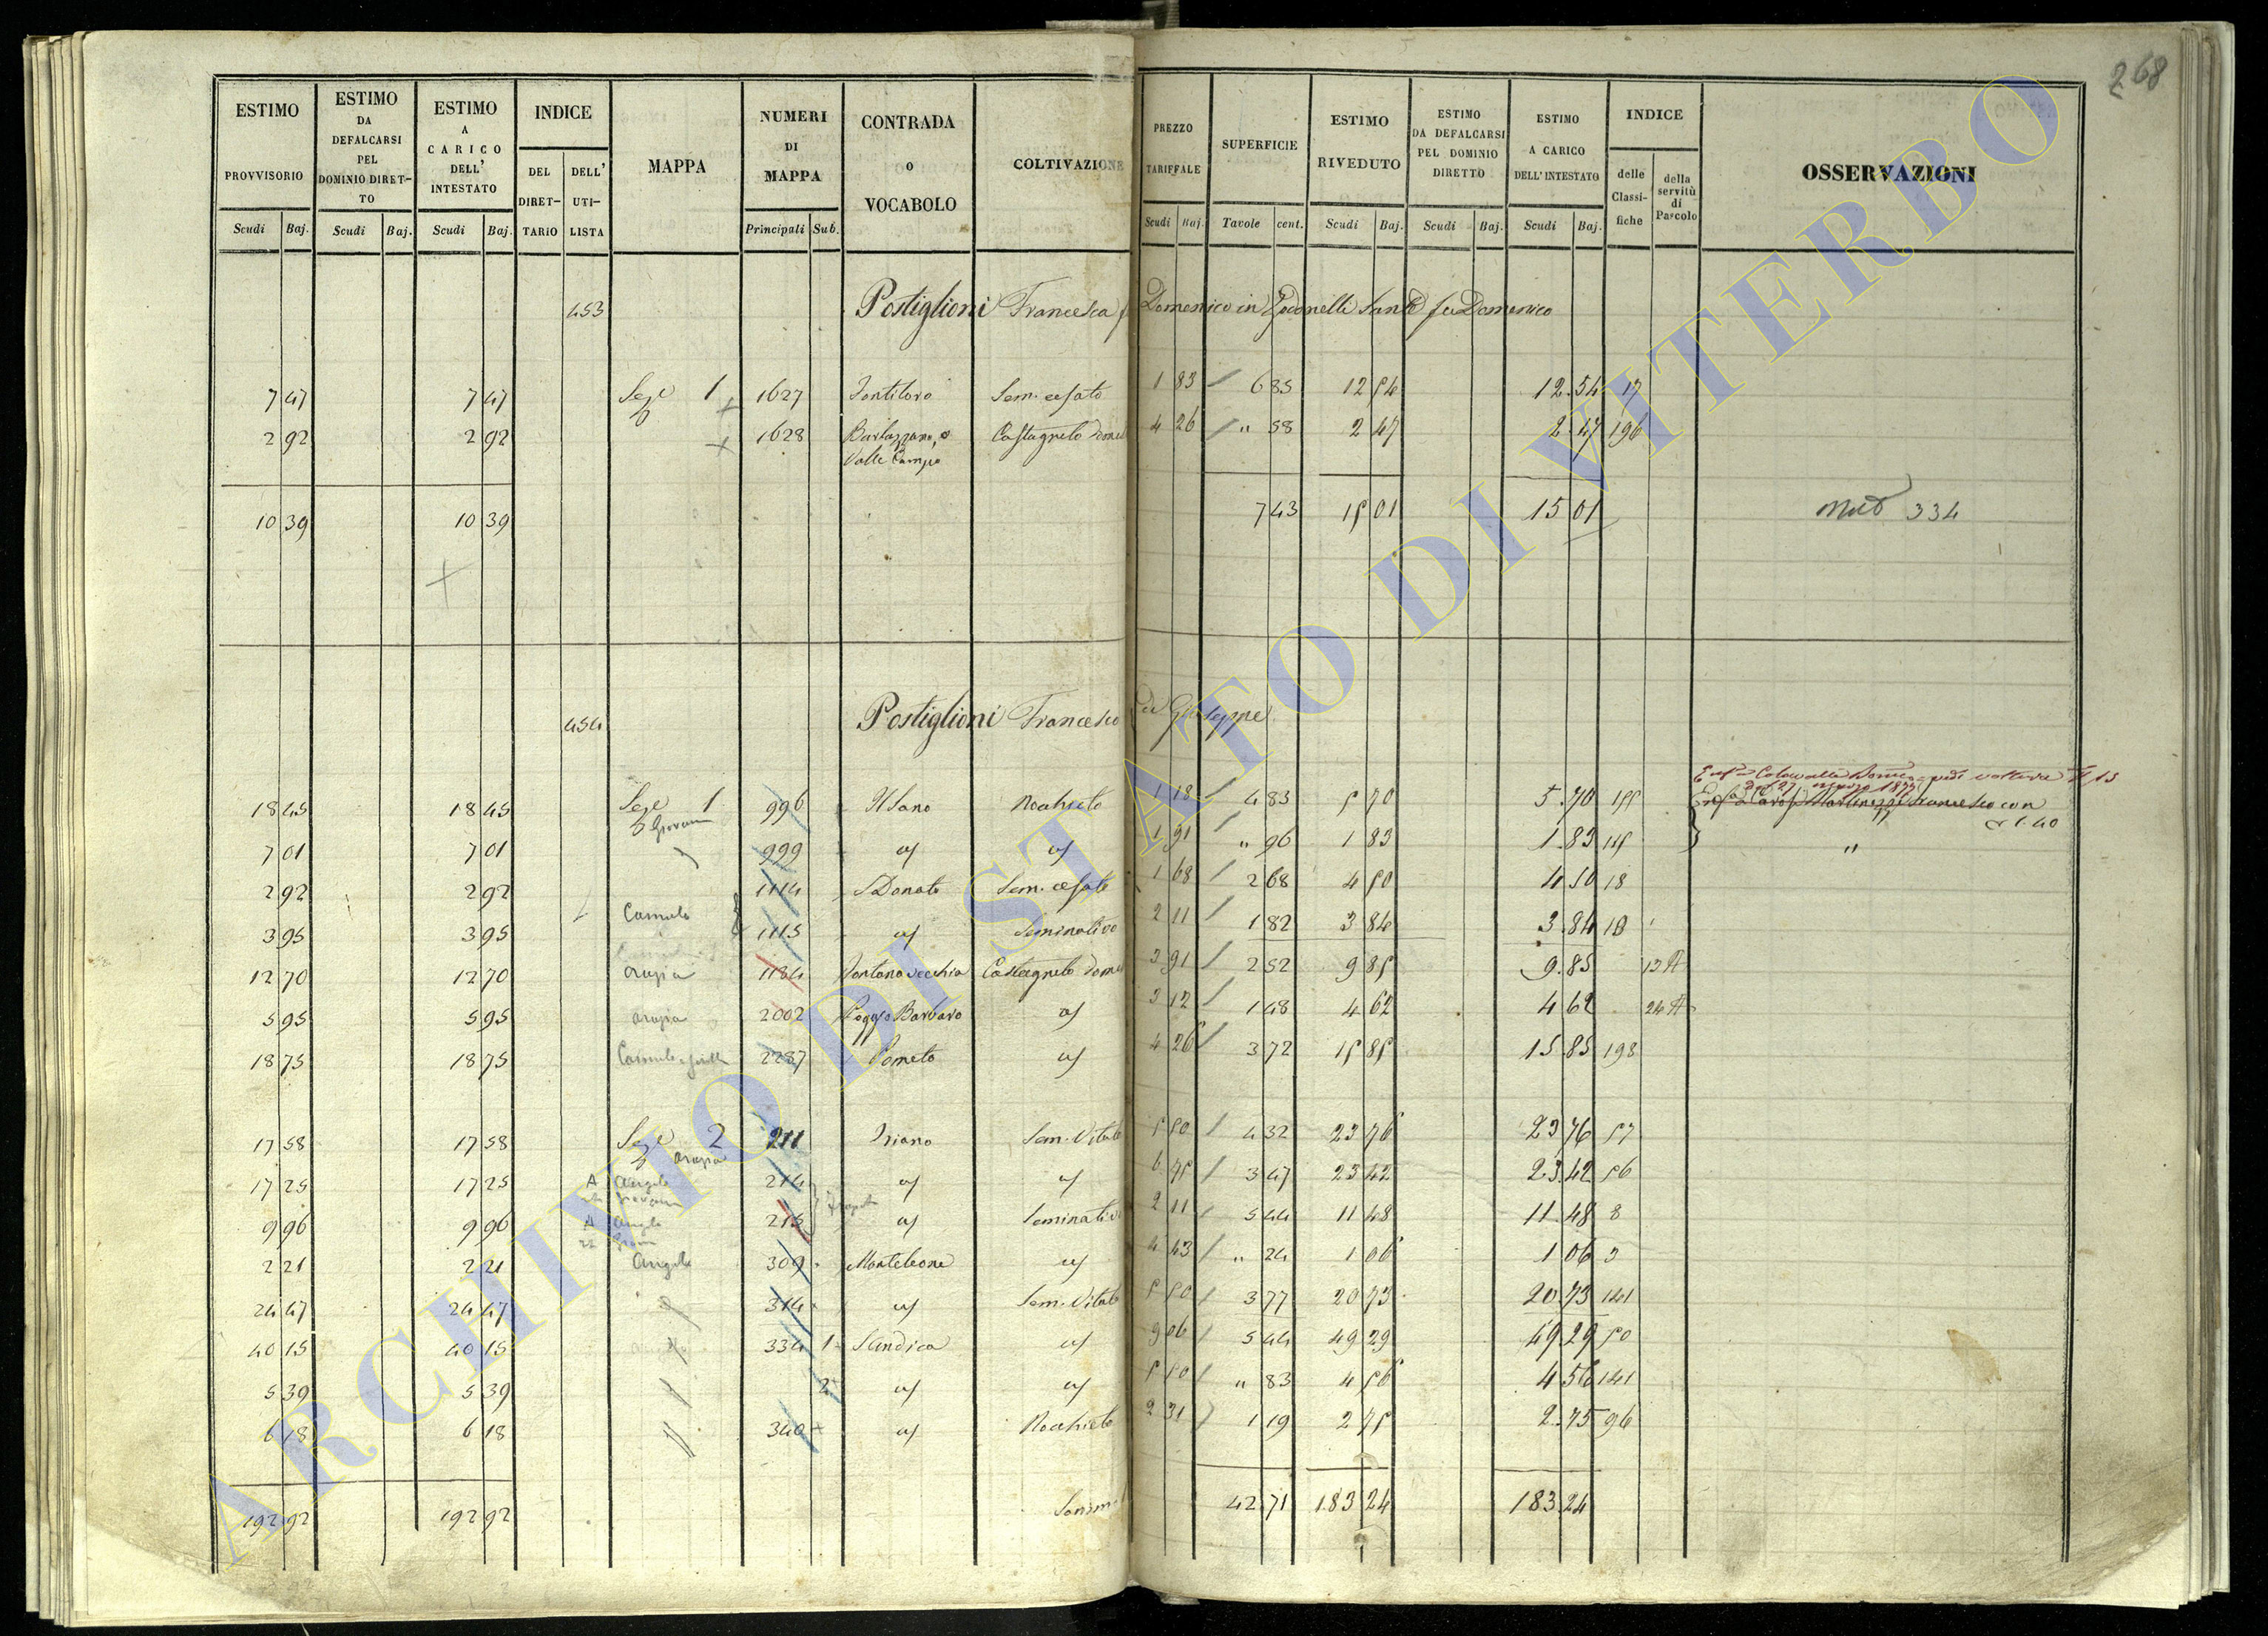 268
ESTIMO PROVVISORIO | ESTIMO DA DEFALCARSI PEL DOMINIO DIRET–TO | ESTIMO A CARICO DELL' INTESTATO | INDICE | MAPPA | NUMERI DI MAPPA | CONTRADA O VOCABOLO | COLTIVAZIONE | PREZZO TARIFFALE | SUPERFICIE | ESTIMO RIVEDUTO | ESTIMO DA DEFALCARSI PEL DOMINIO DIRETTO | ESTIMO A CARICO DELL' INTESTATO | INDICE | OSSERVAZIONI
DEL DIRET–TARIO | DELL' UTI–LISTA | delle Classi–fiche | della servitù di Pascolo
Scudi | Baj. | Scudi | Baj. | Scudi | Baj. | Principali | Sub. | Scudi | Baj. | Tavole | cent. | Scudi | Baj. | Scudi | Baj. | Scudi | Baj.
453 Postiglioni Francesca Domenico in fu Domenico
7 47 | 7 47 | Sez 1 | 1627 | Sem. | 1 83 | 6 85 | 12 54 | 12.54 | 17
2 92 | 2 92 | 1628 | Valle Campo | Castagneto | 4 26 | " 58 | 2 47 | 2.47 | 196
10 39 | 10 39 | 7 43 | 15 01 | 15 01 | 334
454 Postiglioni Francesco di Giuseppe
18 45 | 18 45 | Sez 1 | 996 | Il Sano | Nocchieto | 1 18 | 4 83 | 5 70 | 5.70 | 155
Giovanni
7 01 | 7 01 | 999 | 1 91 | " 96 | 1 83 | 1.83 | "
2 92 | 2 92 | 1114 | S Donato | Sem. | 1 68 | 2 68 | 4 50 | 4 50 | 18
Camulo
3 95 | 3 95 | 1115 | Seminativo | 2 11 | 1 82 | 3 84 | 3.84
12 70 | 12 70 | orazia | 1184 | Fontana vecchia | Castagneto | 3 91 | 2 52 | 9 85 | 9.85 | 12 A
5 95 | 5 95 | orazia | 2002 | Poggio Barbaro | 3 12 | 1 48 | 4 62 | 4 62 | 24 A
18 75 | 18 75 | 2287 | Pometo | 4 26 | 3 72 | 15 85 | 15 85 | 198
17 58 | 17 58 | Sez 2 | 211 | Triano | Sem. Vitato | 5 50 | 4 32 | 23 76 | 23 76 | 57
orazia
17 25 | 17 25 | A | Angelo | 214 | 6 75 | 3 47 | 23 42 | 23.42 | 56
Giovanni
9 96 | 9 96 | A | Angelo | 215 | Seminativo | 2 11 | 5 44 | 11 48 | 11.48 | 8
2 21 | 2 21 | Angelo | 309 | Monteleone | 4 43 | " 24 | 1 06 | 1 06 | 3
24 47 | 24 47 | 314 | Sem. Vitato | 5 50 | 3 77 | 20 73 | 20.73 | 141
40 15 | 40 15 | 334 | 1 | Sandica | 9 06 | 5 44 | 49 29 | 49.29 | 50
5 39 | 5 39 | 2 | 5 50 | " 83 | 4 56 | 4 56 | 141
6 18 | 6 18 | 340 | Nocchieto | 2 31 | 1 19 | 2 75 | 2.75 | 96
192 92 | 192 92 | 42 71 | 183 24 | 183.24
ARCHIVIO DI STATO DI VITERBO